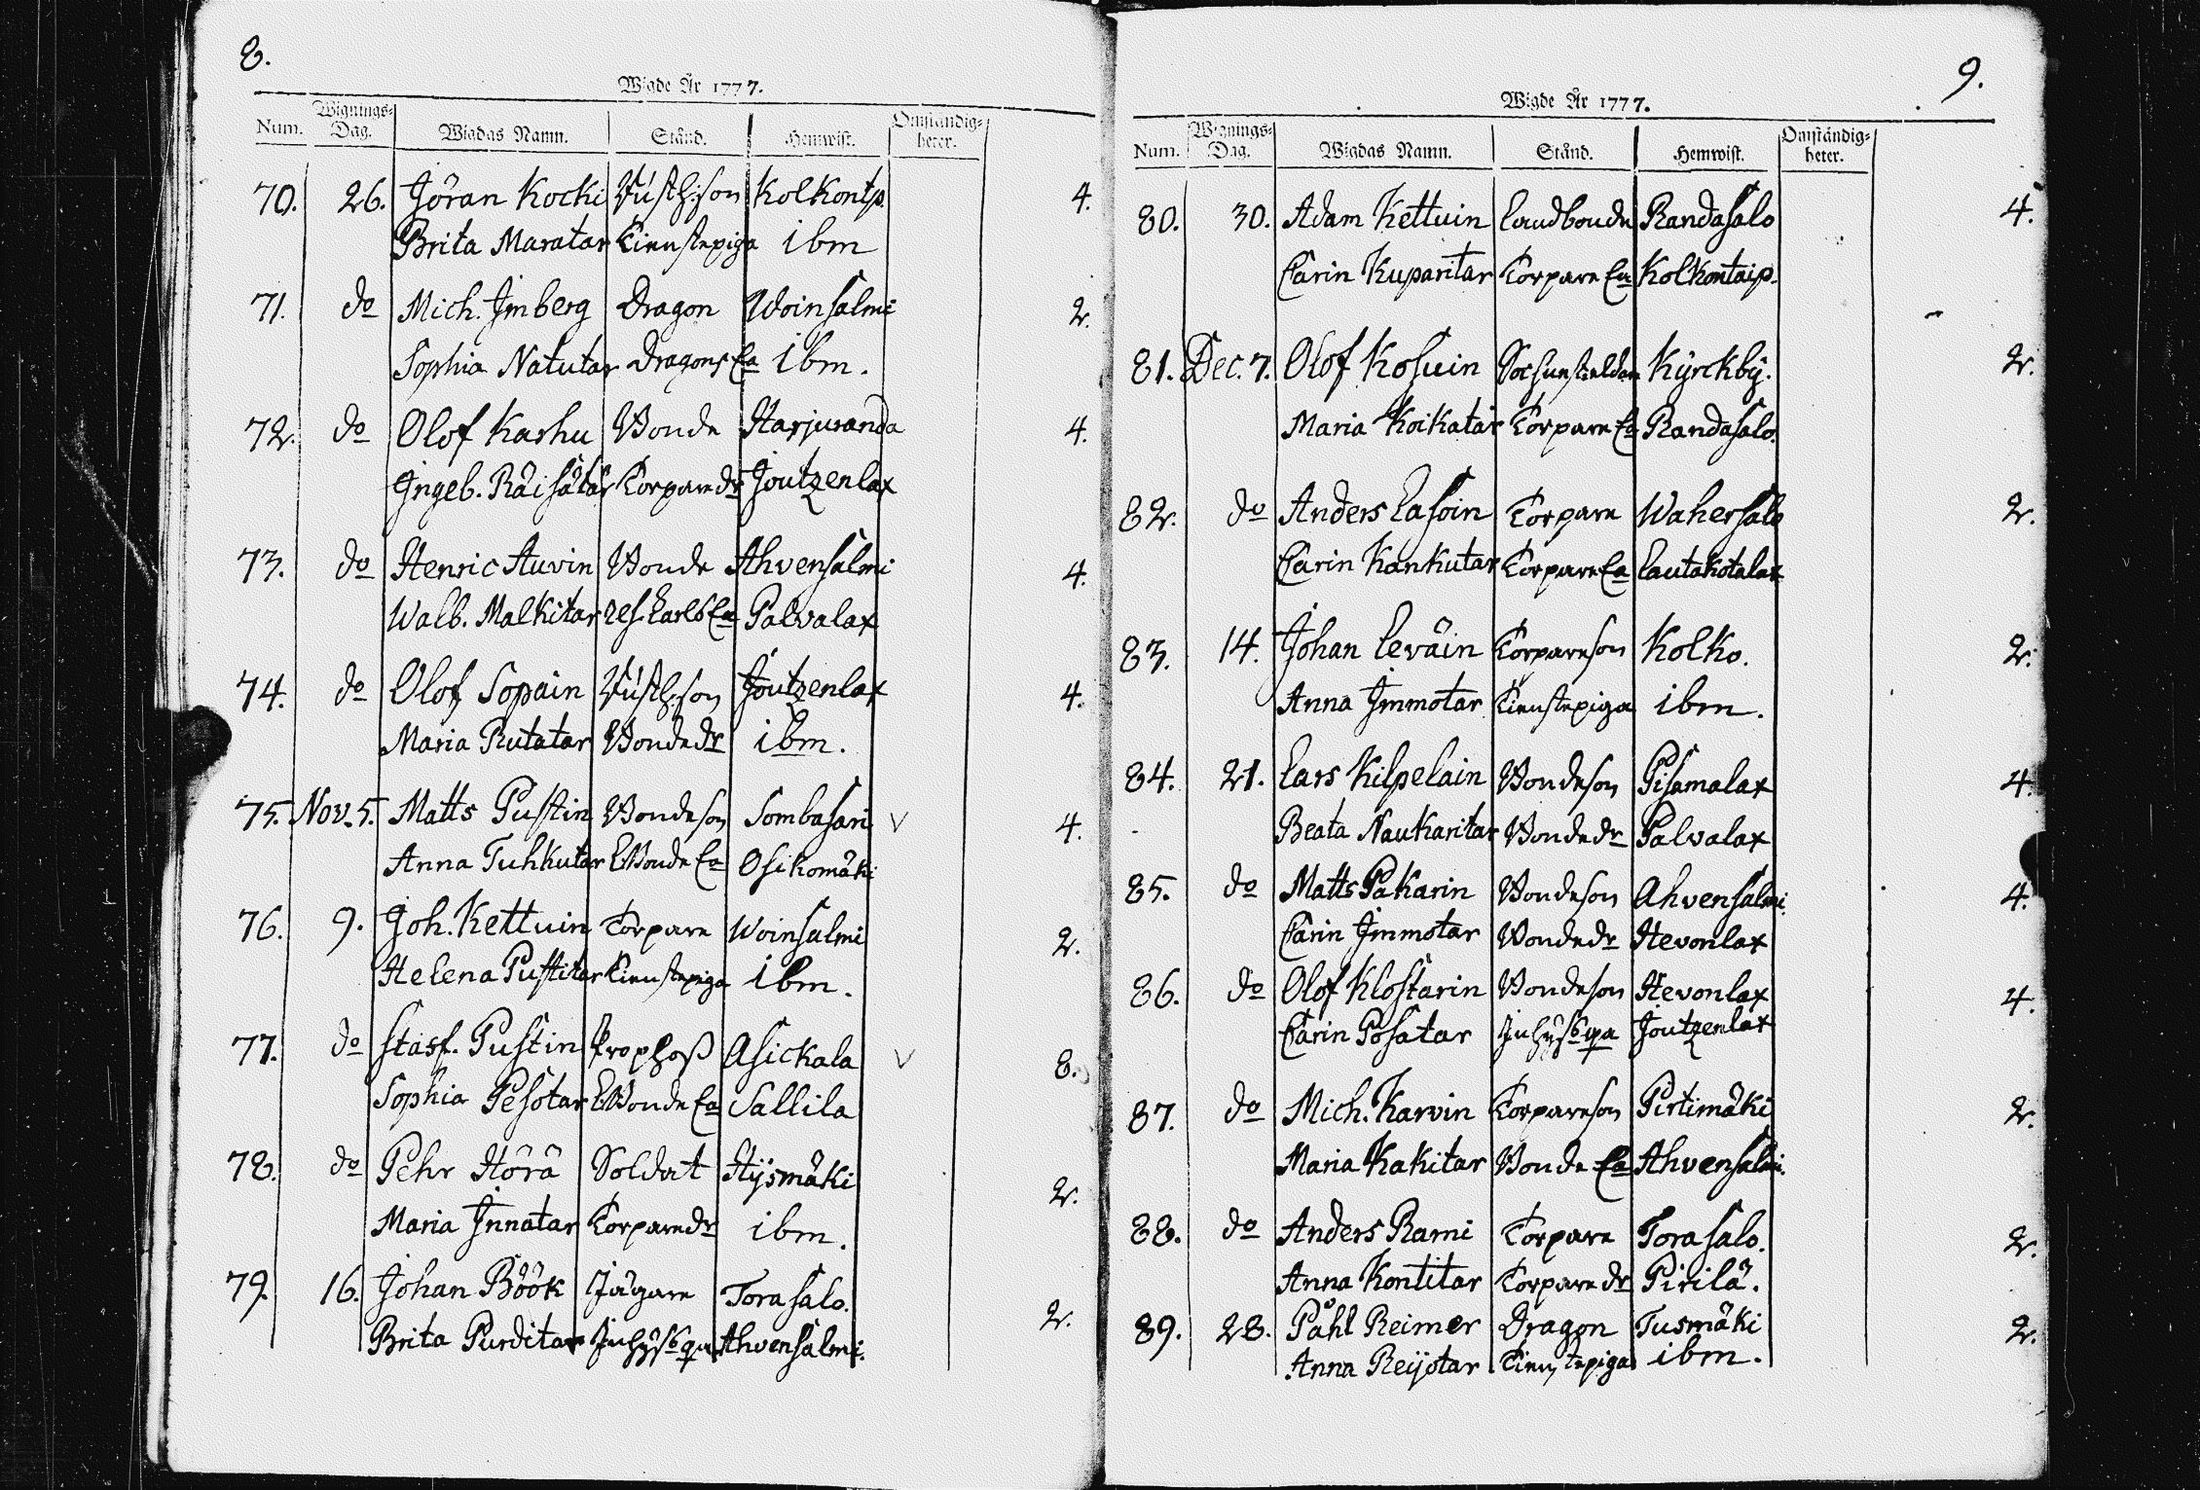 8.
Wigde År 1777.
Num. Wignings-Dag. Wigdas Namn. Stånd. Hemwist. Omständig-heter.
70. 26. Jöran Kocki son Kolkontp. 4.
Brita Maratar Tienstepiga ibm
71. do Mich. Imberg Dragon Woinsalmi 2.
Sophia Natutar Dragons Ea ibm.
72. do Olof Karhu Bonde Harjuranda 4.
Ingeb. Räisätär Torpare dr Joutzenlax
73. do Henric Auvin Bonde Ahvensalmi 4.
Walb. Malkitar Ea Palvalax
74. do Olof Sopain son Joutzenlax 4.
Maria Rutatar Bonde dr ibm.
75. Nov. 5. Matts Pustin Bondeson Sombasari V 4.
Anna Tuhkutar Bonde Ea Osikomäki
76. 9. Joh. Kettuin Torpare Woinsalmi 2.
Helena Pustitar Tienstepiga ibm.
77. do Staf. Pustin Prophoß Asickala V 8.
Sophia Pesotar Bonde Ea Sallila
78. do Pehr Hörä Soldat Hysmäki 2.
Maria Innatar Torpare dr ibm.
79. 16. Johan Böök Jägare Torasalo. 2.
Brita Purditar Inhysqa Ahvensalmi.
9.
Wigde År 1777.
Num. Wignings-Dag. Wigdas Namn. Stånd. Hemwist. Omständig-heter.
80. 30. Adam Kettuin Landbonde Randasalo 4.
Carin Kuparitar Torpare Ea Kolkontaip.
81. Dec. 7. Olof Kosuin Kyrckby. 2.
Maria Koikatar Torpare Ea Randasalo.
82. do Anders Lasoin Torpare Wahersalo 2.
Carin Kankutar Torpare Ea Lautakotalax
83. 14. Johan Leväin Torpareson Kolko. 2.
Anna Immotar Tienstepiga ibm.
84. 21. Lars Kilpelain Bondeson Pisamalax 4.
Beata Naukaritar Bonde dr Palvalax
85. do Matts Pakarin Bondeson Ahvensalmi. 4.
Carin Immotar Bonde dr Hevonlax
86. do Olof Klostarin Bondeson Hevonlax 4.
Carin Posatar Inhysqa Joutzenlax
87. do Mich. Karvin Torpareson Pirtimäki 2.
Maria Kakitar Bonde Ea Ahvensalmi.
88. do Anders Rami Torpare Torasalo. 2.
Anna Kontitar Torpare dr Pirilä.
89. 28. Påhl Reimer Dragon Tusmäki 2.
Anna Reijotar Tienstepiga ibm.